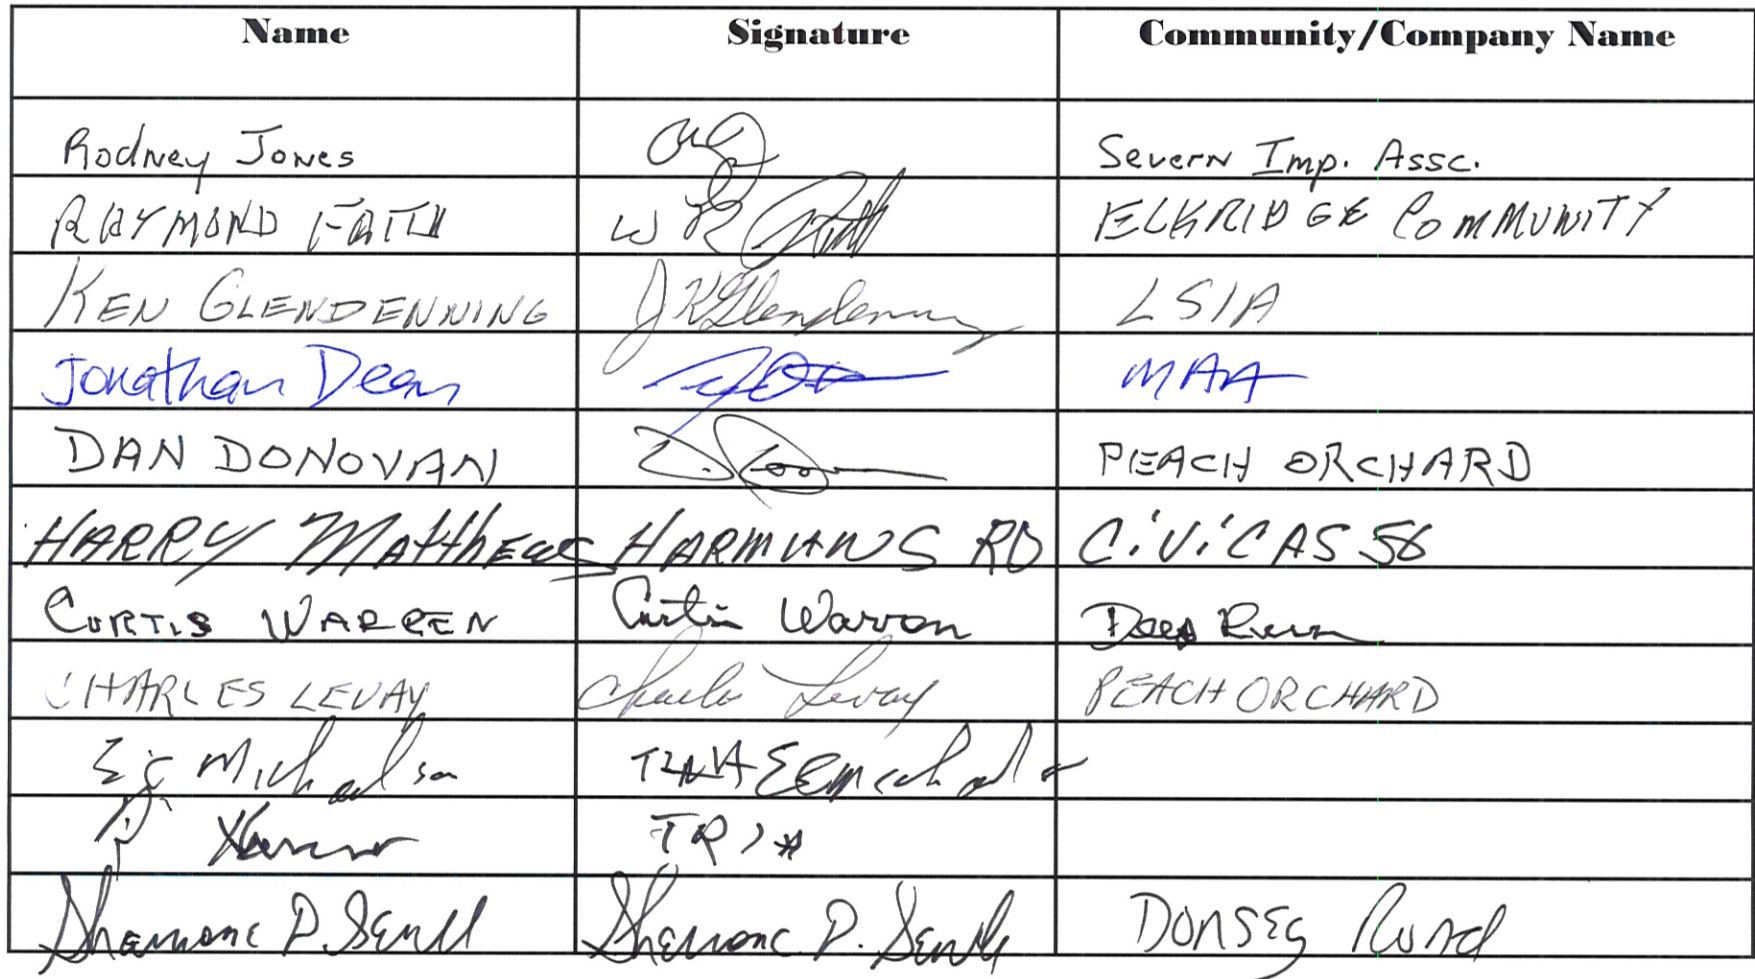 Name Signature Community/Company Name
Rodney Jones Severn Imp. Assc.
RAYMOND FAITH ELKRIDGE COMMUNITY
KEN GLENDENNING JKGlendenning LSIA
Jonathan Dean MAA
DAN DONOVAN PEACH ORCHARD
HARRY Matthews HARMANS RD CiViCAS 56
CURTIS WARREN Curtis Warren Deep Run
CHARLES LEVAY Charles Levay PEACH ORCHARD
Michaelson
D.
Dorsey Road